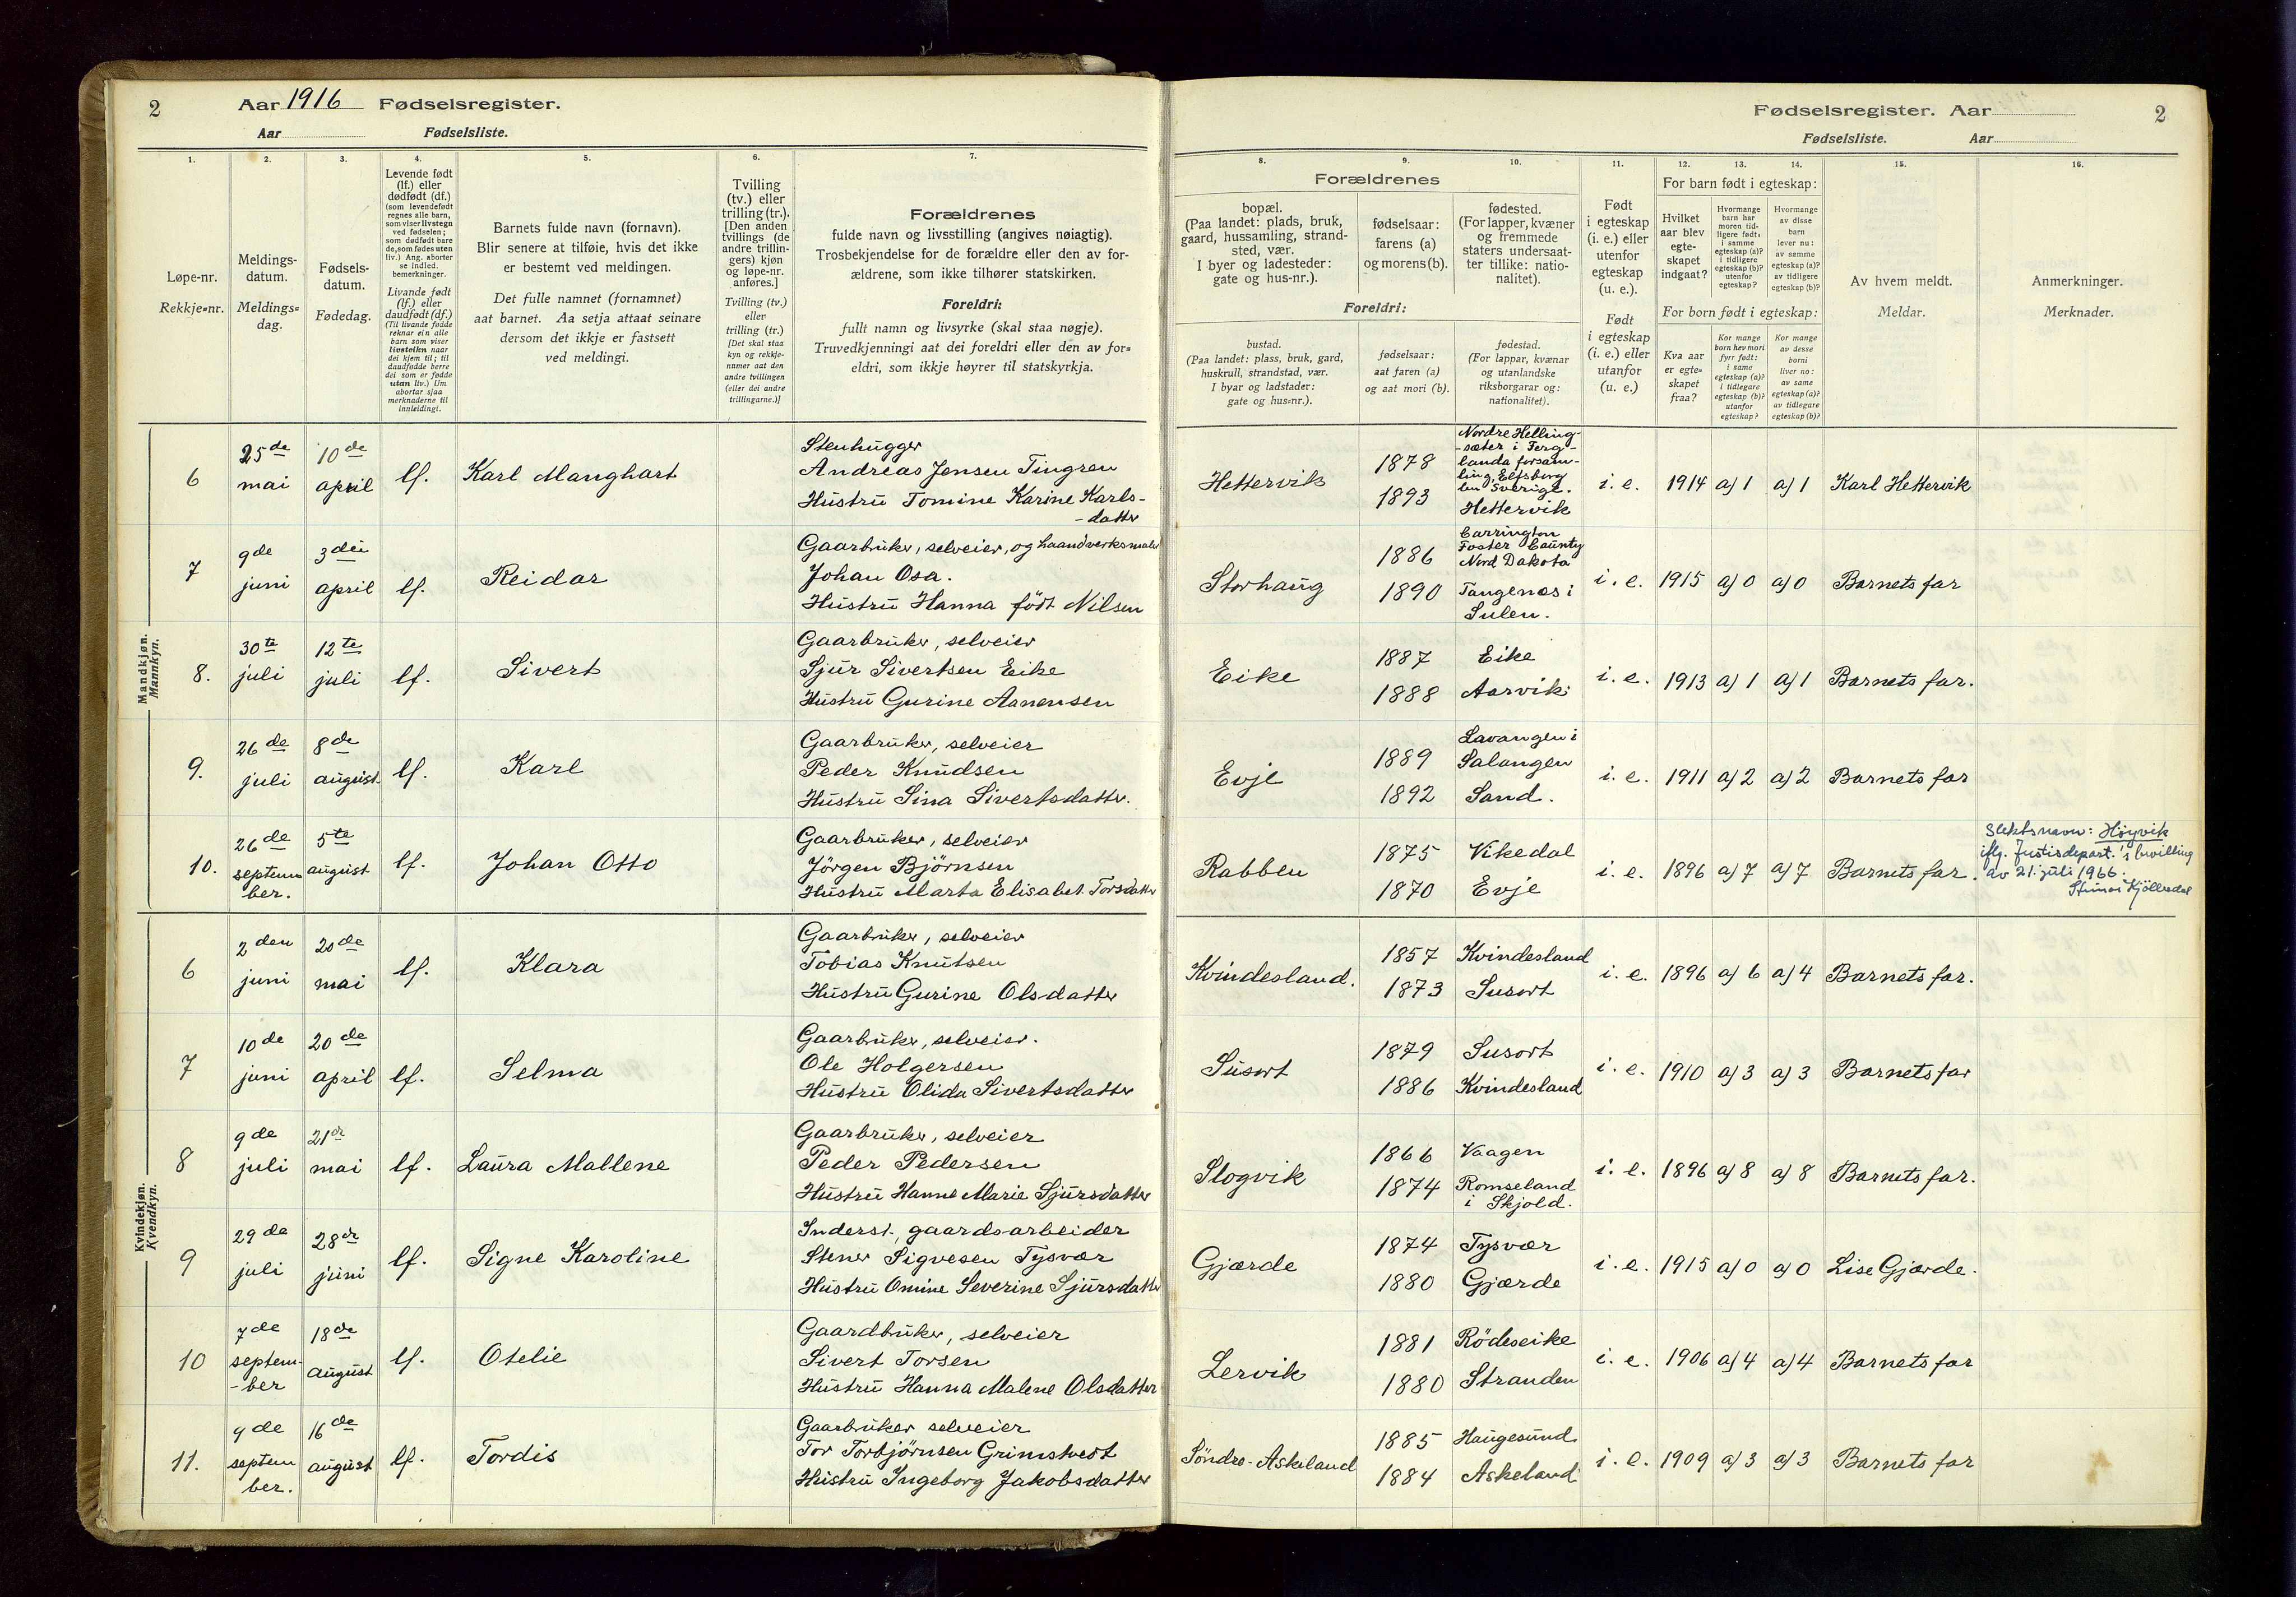 2 Aar 1916 Fødselsregister.
Aar Fødselsliste.
Fødselsregister. Aar 2
Fødselsliste. Aar
1. 2. 3. 4. 5. 6. 7.
Løpe-nr.
Rekkje=nr.
Meldings-
datum.
Meldings=
dag.
Fødsels-
datum.
Fødedag.
Levende født
(lf.) eller
dødfødt (df.)
(som levendefødt
regnes alle barn,
som viser livstegn
ved fødselen;
som dødfødt bare
de, som fødes uten
liv.) Ang. aborter
se indled.
bemerkninger.
Livande født
(lf.) eller
daudfødt (df.)
(Til livande fødde
reknar ein alle
barn som viser
livsteikn naar
dei kjem til; til
daudfødde berre
dei som er fødde
utan liv.) Um
abortar sjaa
merknaderne til
innleidingi.
Barnets fulde navn (fornavn).
Blir senere at tilføie, hvis det ikke
er bestemt ved meldingen.
Det fulle namnet (fornamnet)
aat barnet. Aa setja attaat seinare
dersom det ikkje er fastsett
ved meldingi.
Tvilling
(tv.) eller
trilling (tr.).
[Den anden
tvillings (de
andre trillin-
gers) kjøn
og løpe-nr.
anføres.]
Tvilling (tv.)
eller
trilling (tr.)
[Det skal staa
kyn og rekkje-
numer aat den
andre tvillingen
(eller dei andre
trillingarne.)]
Forældrenes
fulde navn og livsstilling (angives nøiagtig).
Trosbekjendelse for de forældre eller den av for-
ældrene, som ikke tilhører statskirken.
Foreldri:
fullt namn og livsyrke (skal staa nøgje).
Truvedkjenningi aat dei foreldri eller den av for=
eldri, som ikkje høyrer til statskyrkja.
8. 9. 10. 11. 12. 13. 14. 15. 16.
Forældrenes
bopæl.
(Paa landet: plads, bruk,
gaard, hussamling, strand-
sted, vær.
I byer og ladesteder:
gate og hus-nr.).
fødselsaar:
farens (a)
og morens (b).
fødested.
(For lapper, kvæner
og fremmede
staters undersaat-
ter tillike: natio-
nalitet).
Foreldri:
bustad.
(Paa landet: plass, bruk, gard,
huskrull, strandstad, vær.
I byar og ladstader:
gate og hus=nr.).
fødselsaar:
aat faren (a)
og aat mori (b).
fødestad.
(For lappar, kvænar
og utanlandske
riksborgarar og:
nationalitet).
Født
i egteskap
(i. e.) eller
utenfor
egteskap
(u. e.).
Født
i egteskap
(i. e.) eller
utanfor
(u. e.)
For barn født i egteskap:
Hvilket
aar blev
egte-
skapet
indgaat?
Hvormange
barn har
moren tid-
ligere født:
i samme
egteskap (a)?
i tidligere
egteskap (b)?
utenfor
egteskap?
Hvormange
av disse
barn
lever nu:
av samme
egteskap (a)?
av tidligere
egteskap (b)?
For born født i egteskap:
Kva aar
er egte=
skapet
fraa?
Kor mange
born hev mori
fyrr født:
i same
egteskap (a)?
i tidlegare
egteskap (b)?
utanfor
egteskap?
Kor mange
av desse
borni
liver no:
av same
egteskap (a)?
av tidlegare
egteskap (b)?
Av hvem meldt.
Meldar.
Anmerkninger.
Merknader.
Mandkjøn.
Mannkyn.
6 25de mai 10de april lf. Karl Manghart
Stenhugger
Andreas Jensen Tingren
Hustru Tomine Karine Karls-
-datter
Hettervik 1878 1893
Nordre Helling-
-sæter i Ferg-
landa forsam-
ling, Elfsborg
len Sverige.
Hettervik
i. e. 1914 a) 1 a) 1 Karl Hettervik
7 9de juni 3die april lf. Reidar
Gaarbruker, selveier, og haandverksmaler
Johan Osa.
Hustru Hanna født Nilsen
Storhaug 1886 1890
Carrington
Foster County
Nord Dakota
Tangenæs i
Sulen.
i. e. 1915 a) 0 a) 0 Barnets far
8. 30te juli 12te juli lf. Sivert
Gaarbruker, selveier
Sjur Sivertsen Eike
Hustru Gurine Aanensen
Eike 1887 Eike
1888 Aarvik
i. e. 1913 a) 1 a) 1 Barnets far.
9. 26de juli 8de august lf. Karl
Gaarbruker, selveier
Peder Knudsen
Hustru Sina Sivertsdatter.
Evje 1889 1892
Lavangen i
Salangen
Sand.
i. e. 1911 a) 2 a) 2 Barnets far
10. 26de septem ber. 5te august lf. Johan Otto
Gaarbruker, selveier
Jörgen Björnsen
Hustru Marta Elisabet Torsdatter
Rabben 1875 Vikedal
1870 Evje
i. e. 1896 a) 7 a) 7 Barnets far.
Slektsnavn: Høyvik
iflg. Justisdepart.'s bevilling
av 21. juli 1966.
Kvindekjøn.
Kvendkyn.
6 2den juni 20de mai lf. Klara
Gaarbruker, selveier
Tobias Knutsen
Hustru Gurine Olsdatter
Kvindesland. 1857 Kvindesland
1873 Susort
i. e. 1896 a) 6 a) 4 Barnets far.
7 10de juni 20de april lf. Selma
Gaarbruker, selveier.
Ole Holgersen
Hustru Olida Sivertsdatter
Susort 1879 Susort
1886 Kvindesland
i. e. 1910 a) 3 a) 3 Barnets far
8 9de juli 21de mai lf. Laura Mallene
Gaarbruker, selveier
Peder Pedersen
Hustru Hanne Marie Sjursdatter
Slogvik 1866 Vaagen
1874 Romseland
i Skjold.
i. e. 1896 a) 8 a) 8 Barnets far.
9 29de juli 28de juni lf. Signe Karoline
Inderst, gaardsarbeider
Stener Sigvesen Tysvær
Hustru Omine Severine Sjursdatter
Gjærde 1874 Tysvær
1880 Gjærde
i. e. 1915 a) 0 a) 0 Lise Gjærde.
10 7de septem- -ber 18de august lf. Otelie
Gaardbruker, selveier
Sivert Torsen
Hustru Hanna Malene Olsdatter
Lervik 1881 Rödeseike
1880 Stranden
i. e. 1906 a) 4 a) 4 Barnets far
11. 9de septem ber. 16de august lf. Tordis
Gaarbruker selveier
Tor Torbjørnsen Grimstvest
Hustru Ingeborg Jakobsdatter
Söndre-Askeland 1885 Haugesund
1884 Askeland
i. e. 1909 a) 3 a) 3 Barnets far